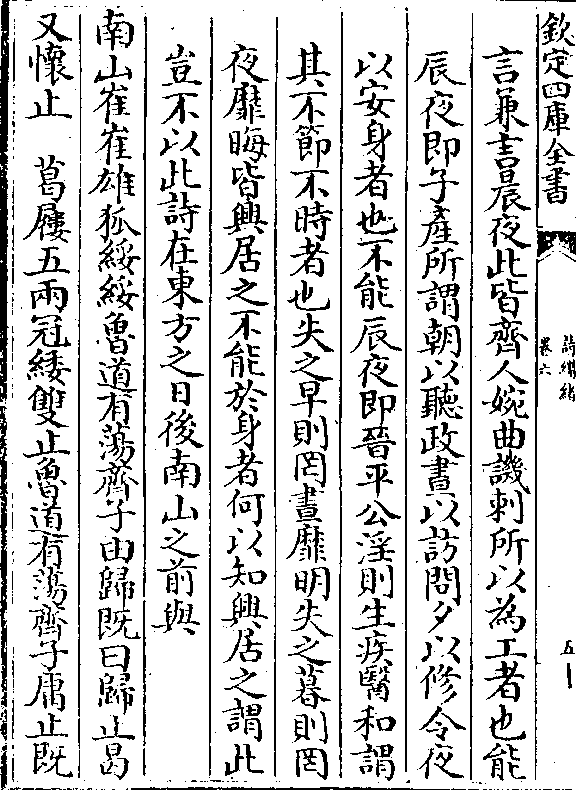 欽定四庫全書
詩纘緒
卷六
五
言兼言晨夜此皆齊人婉曲譏刺所以為工者也能
辰夜即子產所謂朝以聽政晝以訪問夕以修令夜
以安身者也不能辰夜即晉平公淫則生疾醫和謂
其不節不時者也失之早則罔晝靡明失之暮則罔
夜靡晦皆興居之不能於身者何以知興居之謂此
豈不以此詩在東方之日後南山之前與
南山崔崔雄狐綏綏魯道有蕩齊子由歸既曰歸止曷
又懷止　葛屨五兩冠緌雙止魯道有蕩齊子庸止既